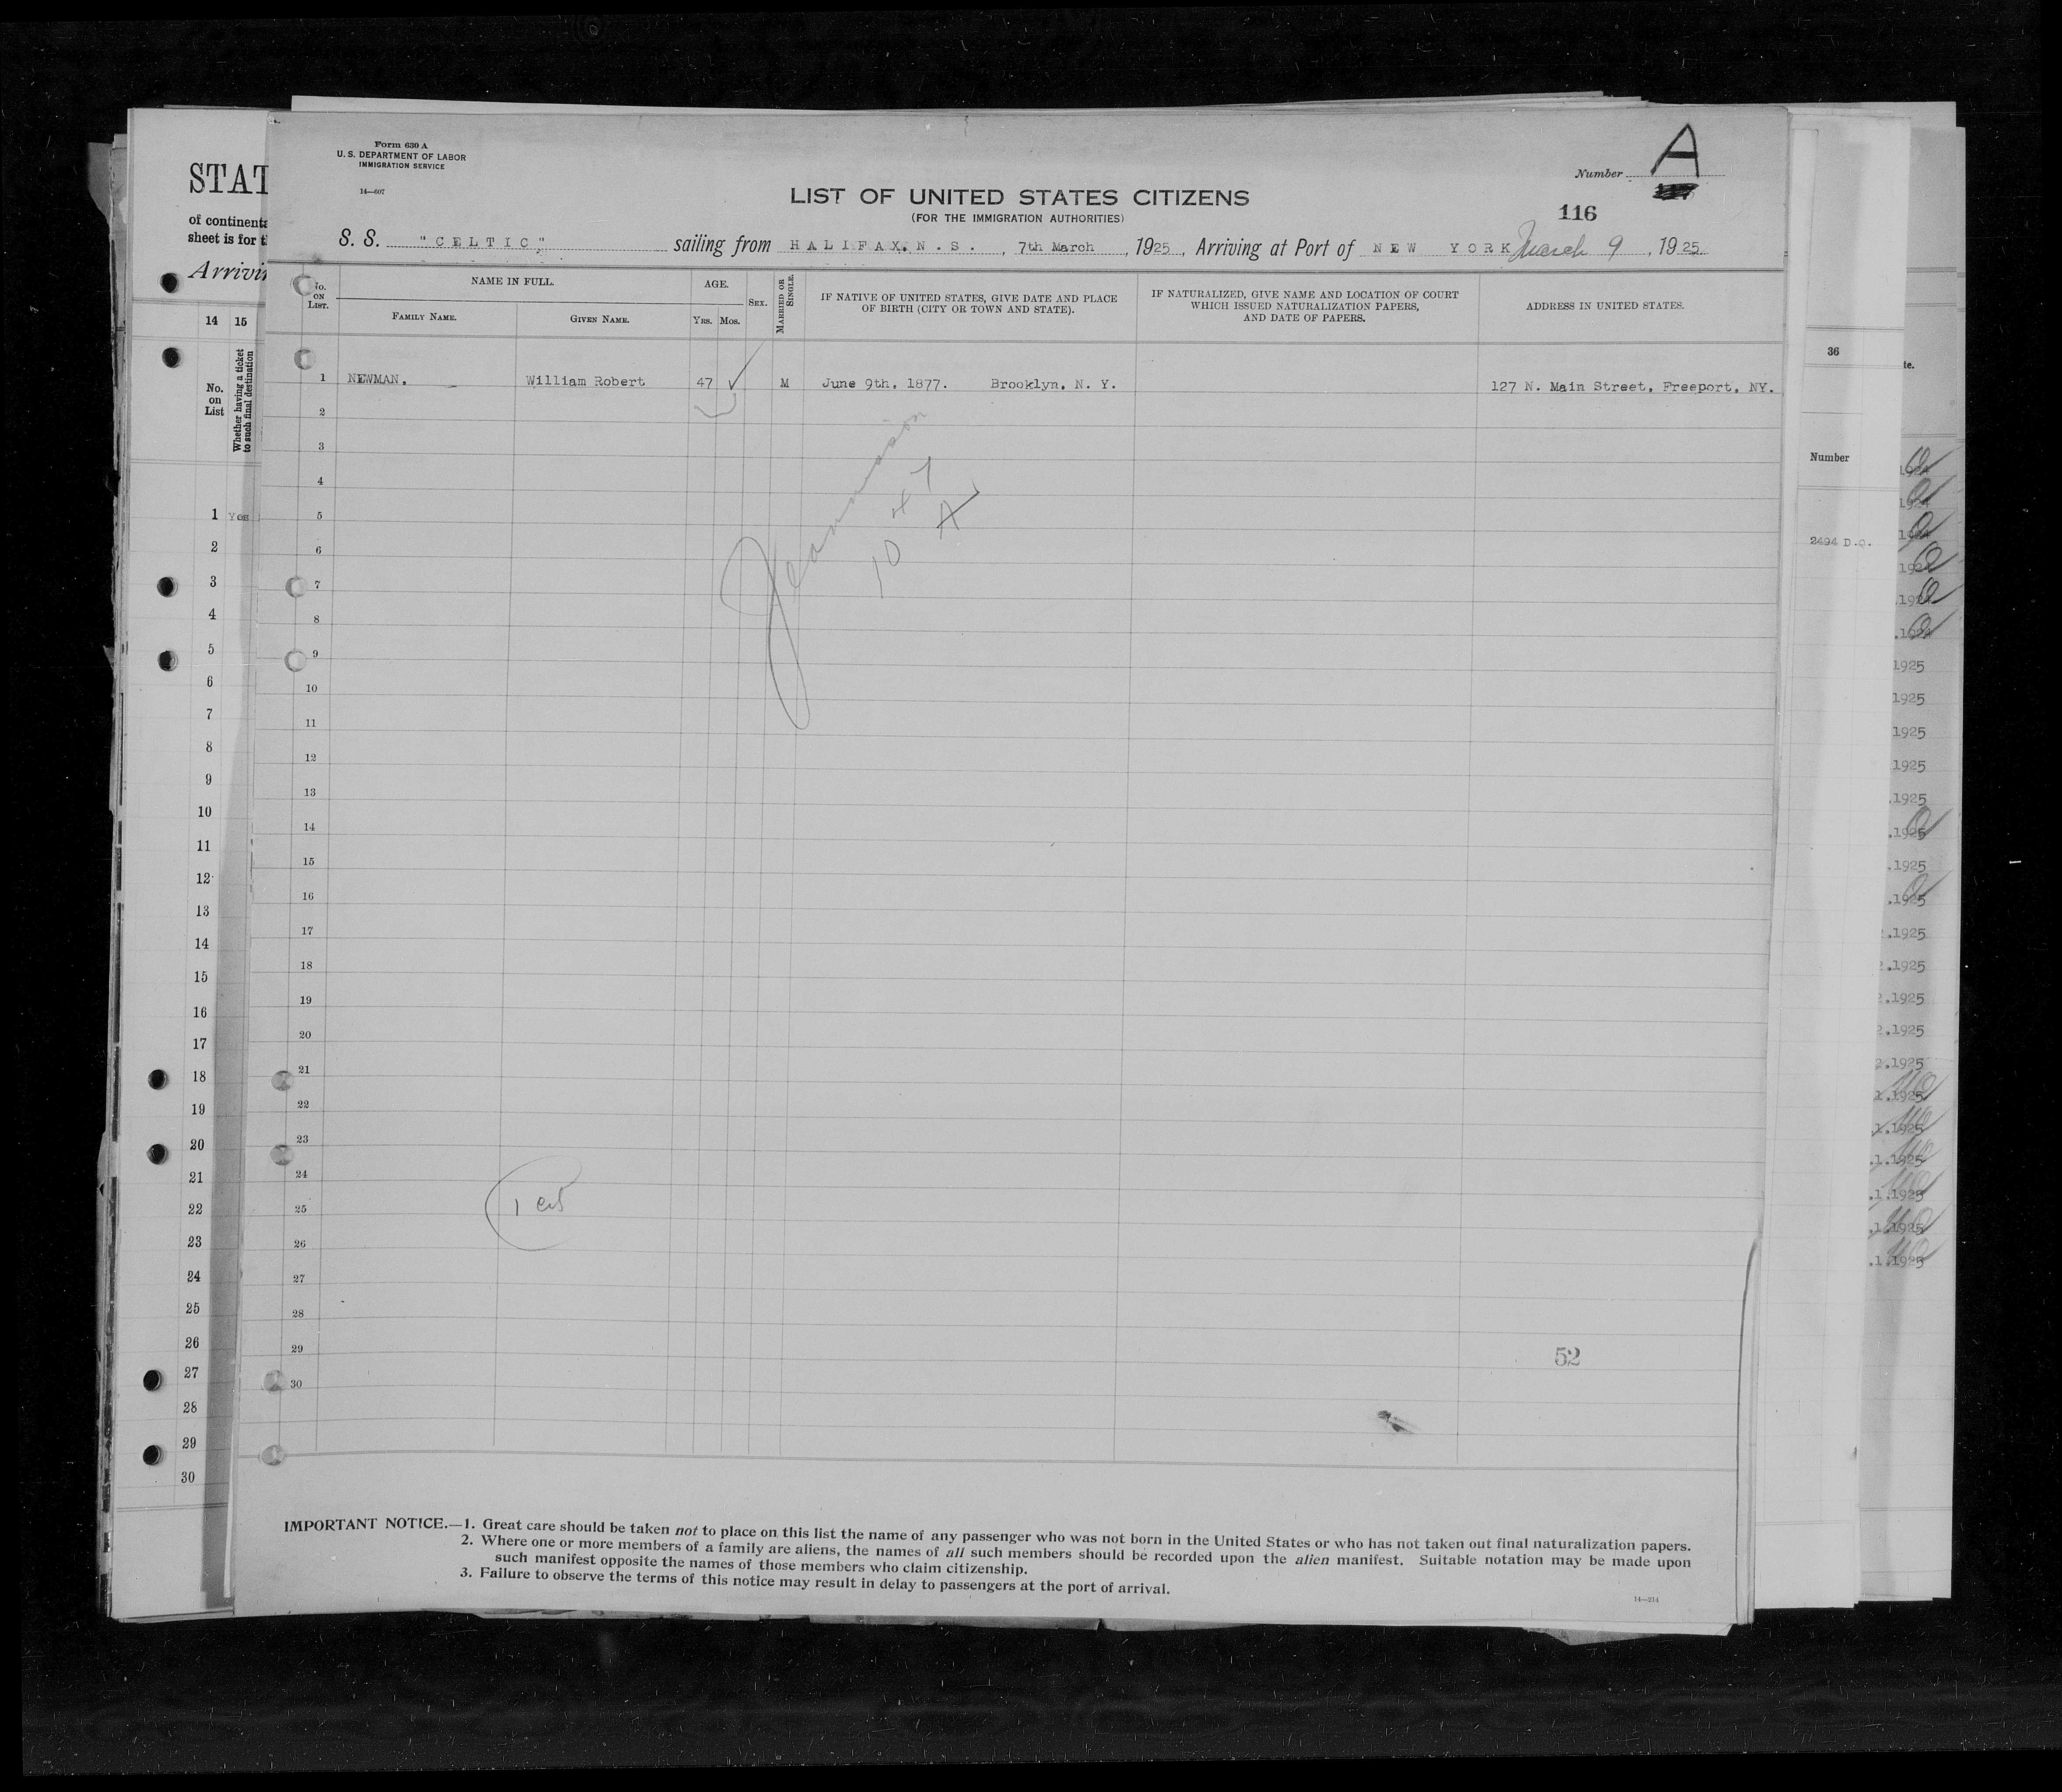 Form 630 A
U. S. DEPARTMENT OF LABOR
IMMIGRATION SERVICE
14—607
Number A
LIST OF UNITED STATES CITIZENS
(FOR THE IMMIGRATION AUTHORITIES)
116
S. S. "CELTIC" sailing from HALIFAX, N.S. , 7th March , 1925 , Arriving at Port of NEW YORK March 9 , 1925
No. ON LIST.
NAME IN FULL.
FAMILY NAME.
GIVEN NAME.
AGE.
YRS. MOS.
SEX.
MARRIED OR SINGLE.
IF NATIVE OF UNITED STATES, GIVE DATE AND PLACE
OF BIRTH (CITY OR TOWN AND STATE).
IF NATURALIZED, GIVE NAME AND LOCATION OF COURT
WHICH ISSUED NATURALIZATION PAPERS,
AND DATE OF PAPERS.
ADDRESS IN UNITED STATES.
1 NEWMAN, William Robert 47 M June 9th, 1877. Brooklyn, N. Y. 127 N. Main Street, Freeport, NY.
2
3
4
5
6
7
8
9
10
11
12
13
14
15
16
17
18
19
20
21
22
23
24
25
26
27
28
29
30
52
IMPORTANT NOTICE.—1. Great care should be taken not to place on this list the name of any passenger who was not born in the United States or who has not taken out final naturalization papers.
2. Where one or more members of a family are aliens, the names of all such members should be recorded upon the alien manifest. Suitable notation may be made upon
such manifest opposite the names of those members who claim citizenship.
3. Failure to observe the terms of this notice may result in delay to passengers at the port of arrival.
14—214
STAT
of continenta
sheet is for t
Arrivin
14 15
No. on List
Whether having a ticket
to such final destination
1 Yes
2
3
4
5
6
7
8
9
10
11
12
13
14
15
16
17
18
19
20
21
22
23
24
25
26
27
28
29
30
36
Number
2494 D.Q.
te.
1924
1924
1924
1924
.1924
.1924
1925
1925
1925
1925
.1925
.1925
.1925
.1925
.1925
2.1925
2.1925
2.1925
2.1925
1.1925
1.1925
.1.1925
.1.1925
.1.1925
.1.1925